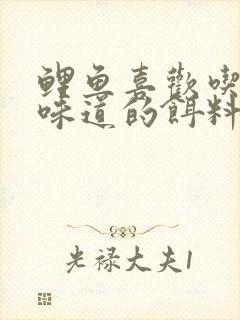 鲤鱼喜歡喫
味道的餌料
光禄大夫1